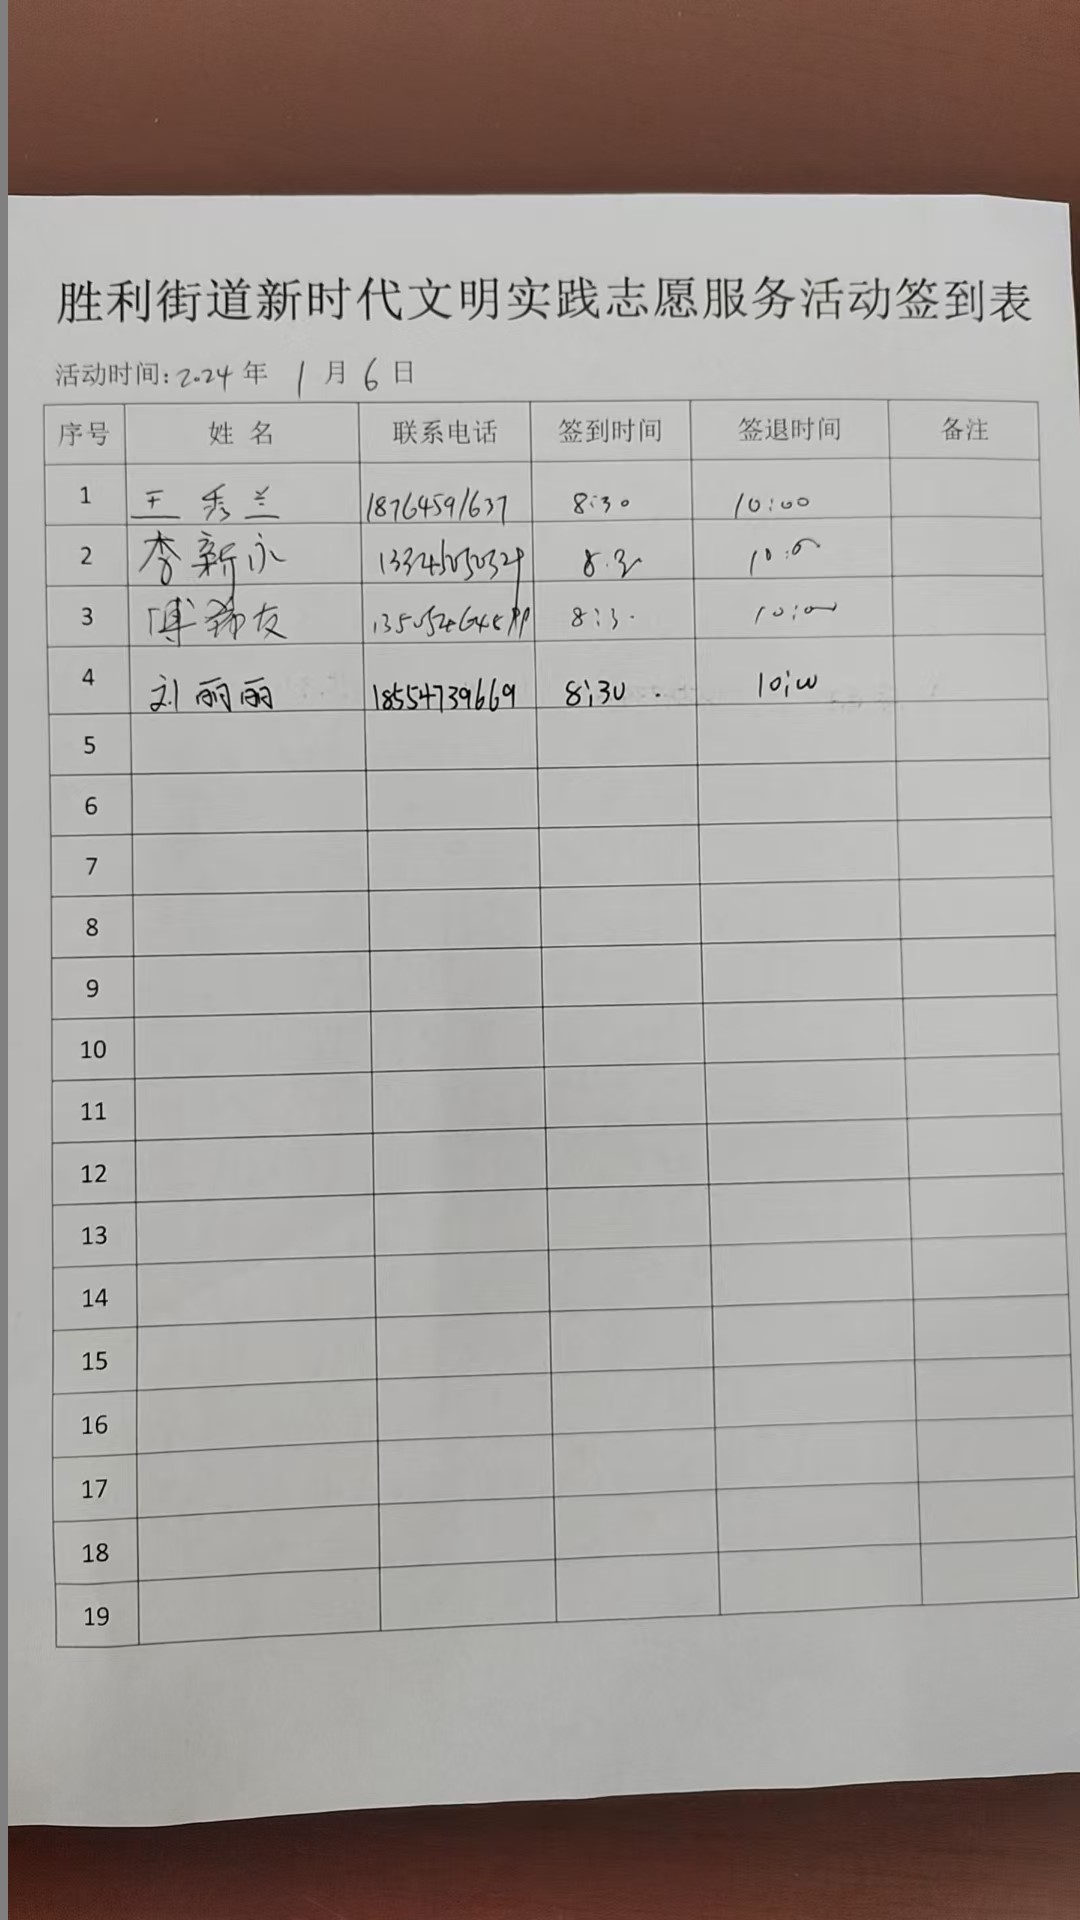 胜利街道新时代文明实践志愿服务活动签到表
活动时间:2024年 1月6日
序号 姓 名 联系电话 签到时间 签退时间 备注
1 王秀兰 18764591637 8:30 10:00
2 李新永 8:30 10:00
3 傅 友 8:30 10:00
4 刘丽丽 18554739669 8:30 10:00
5
6
7
8
9
10
11
12
13
14
15
16
17
18
19